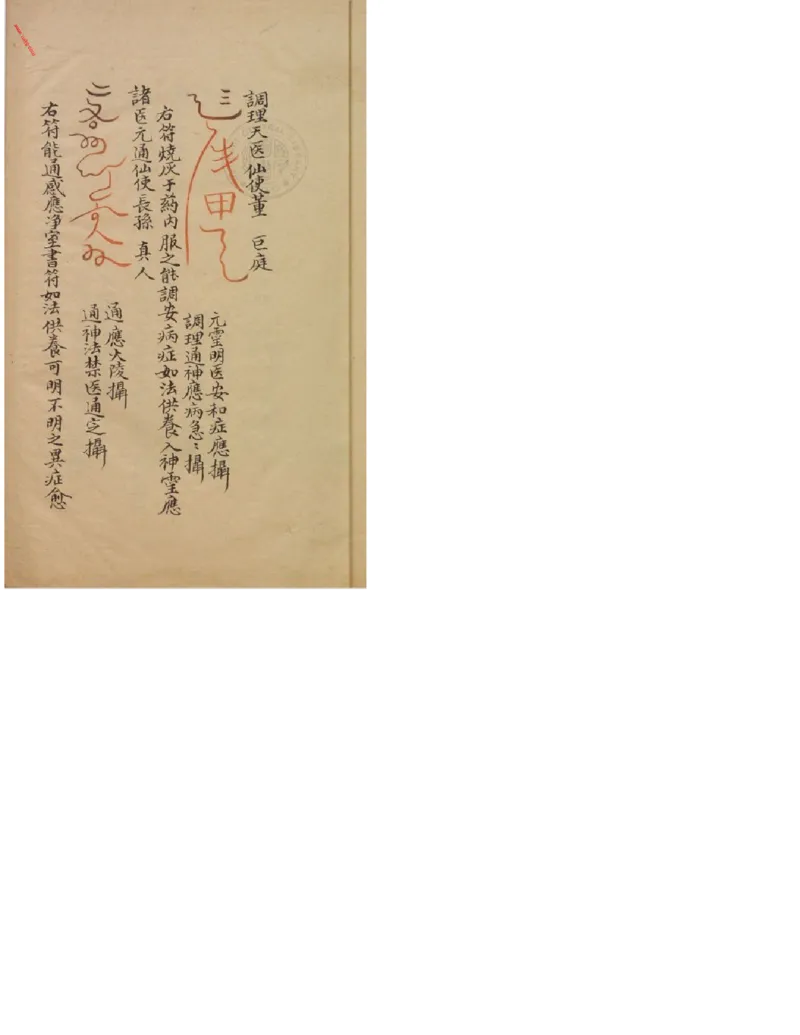 調理天医仙使董 巨庭
元靈明医安和症應攝
調理通神應病急〻攝
右符燒灰于药内服之能調安病症如法供養入神靈應
諸医元通仙使長孫 真人
通應大陵攝
通神法禁医通定攝
右符能通感應净室書符如法供養可明不明之異症愈